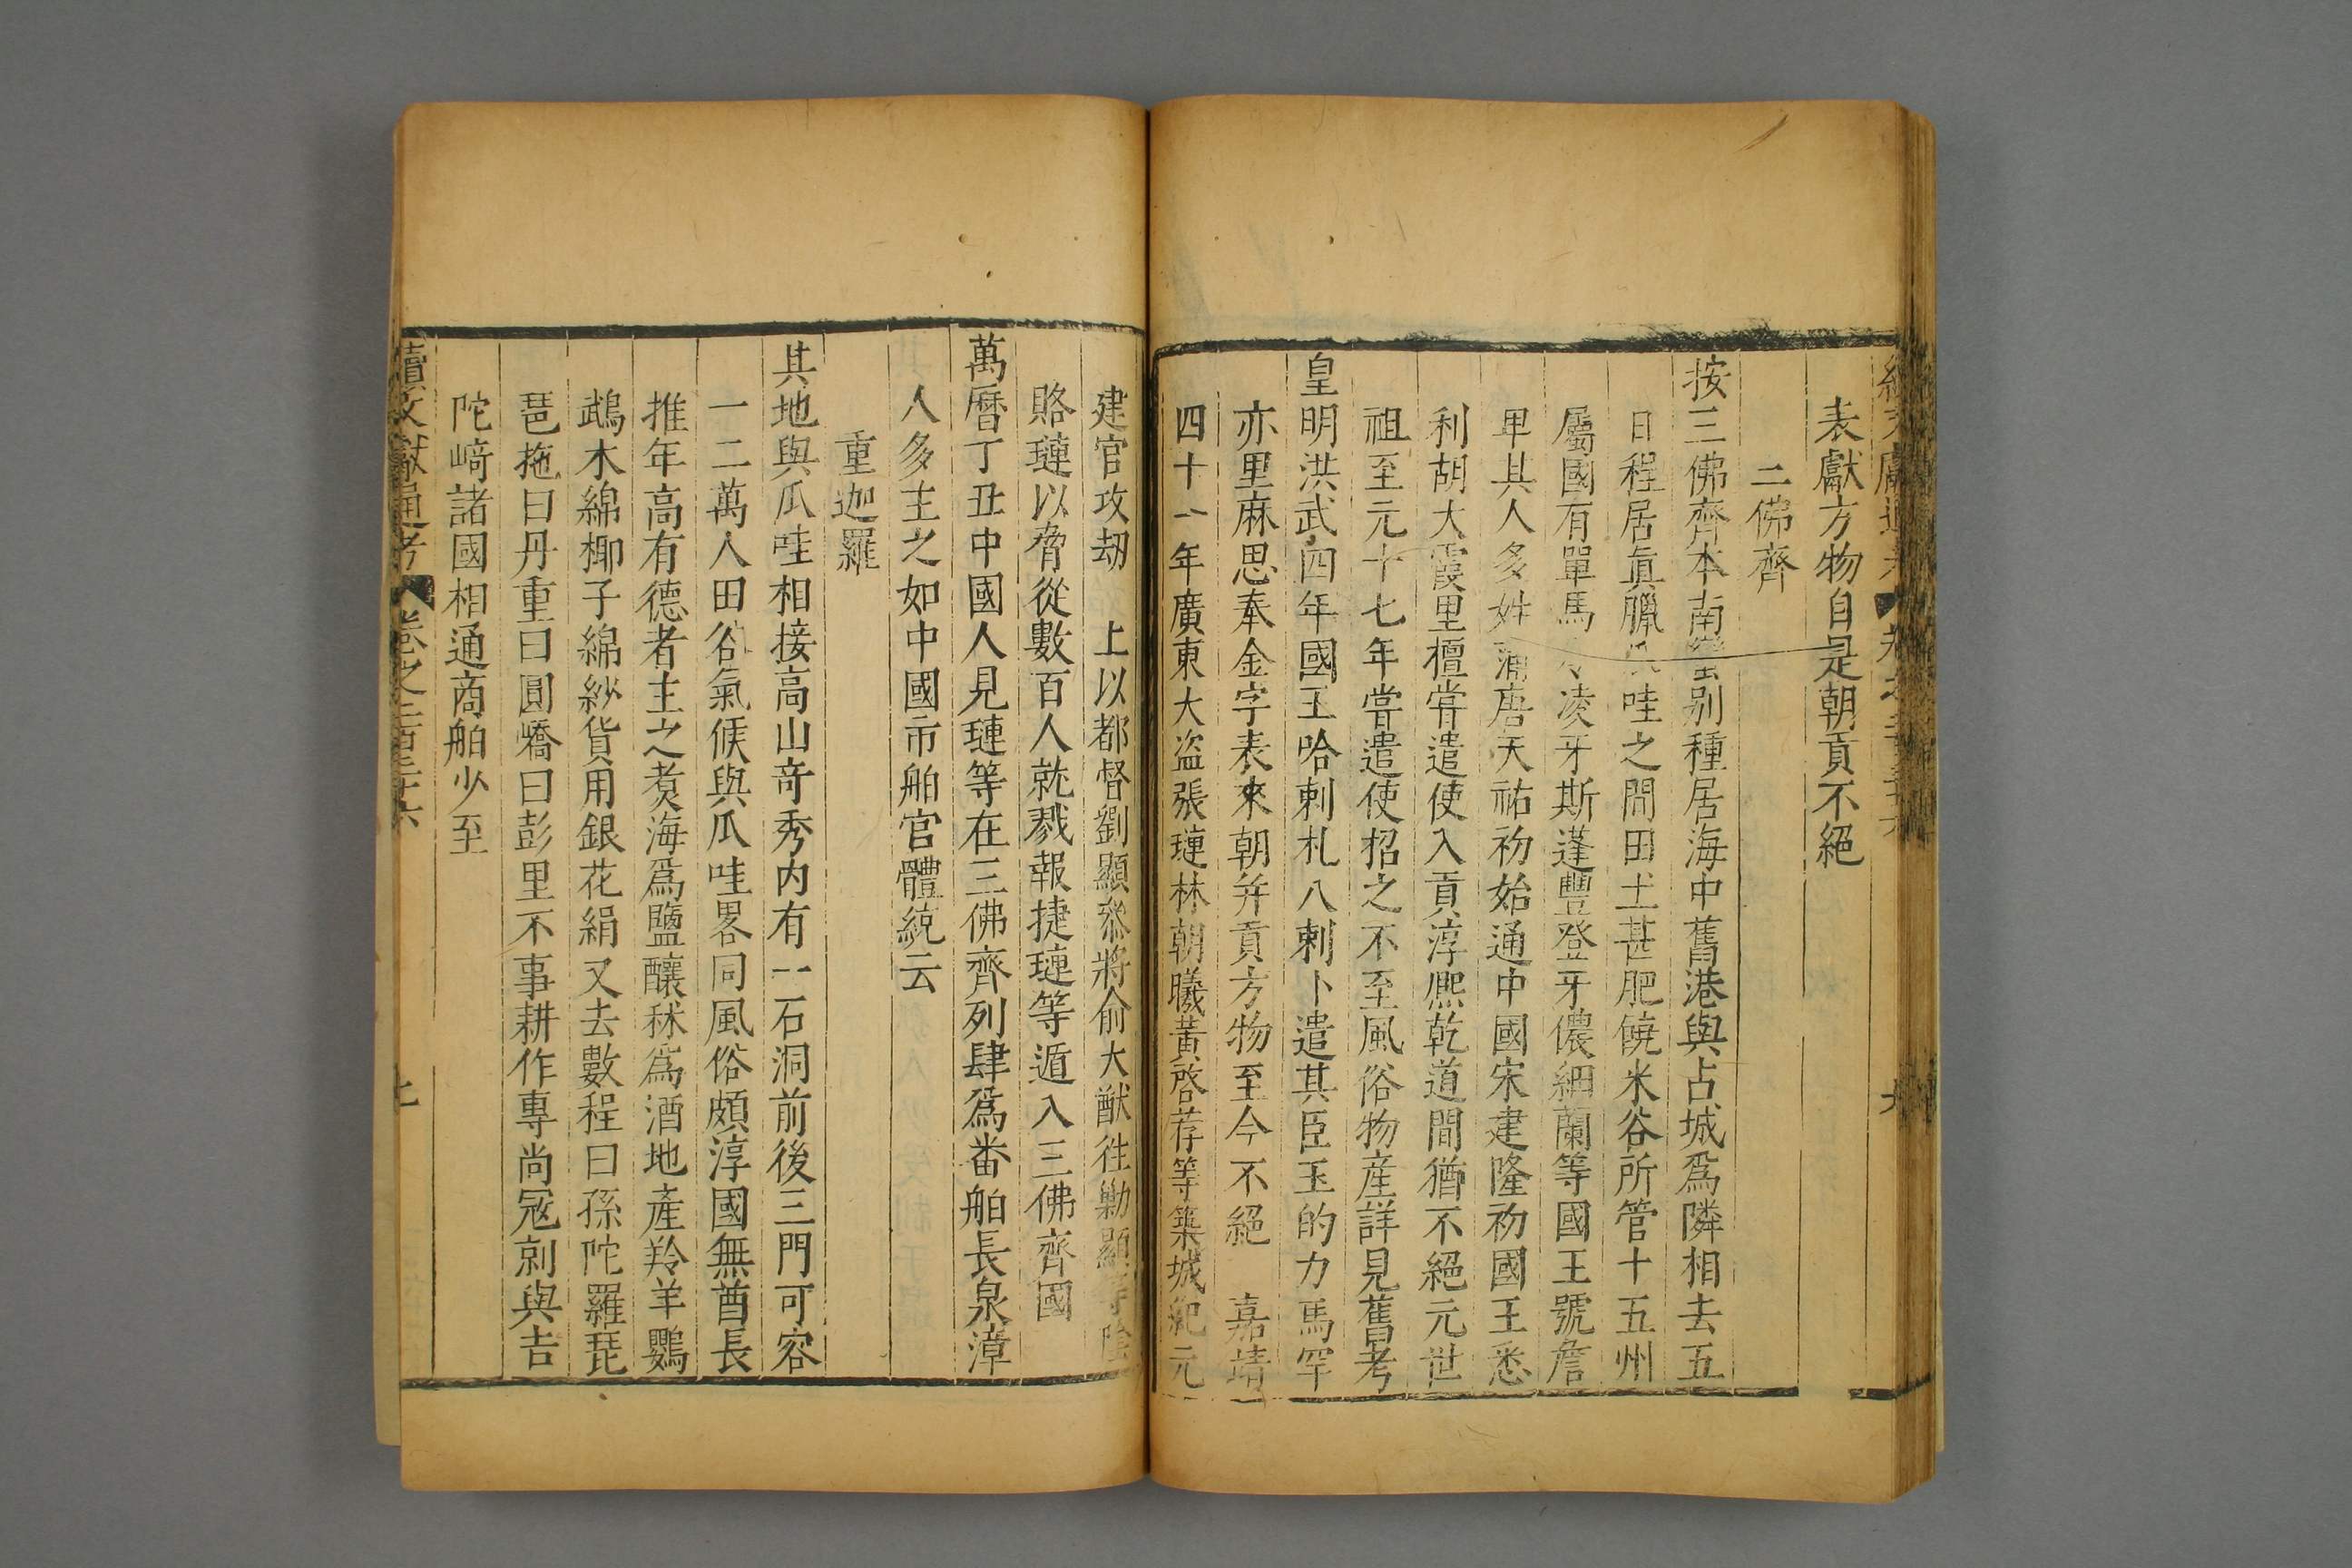 表獻方物自是朝貢不絕
二佛齊
按三佛齊本南蠻别種居海中舊港與占城爲隣相去五
日程居眞臘 哇之間田土甚肥饒米谷所管十五州
屬國有單馬 凌牙斯蓬豐登牙儂細蘭等國王號詹
甲其人多姓蒲唐天祐初始通中國宋建隆初國王悉
利胡大霞里檀嘗遣使入貢淳熈乾道間猶不絕元世
祖至元十七年嘗遣使招之不至風俗物産詳見舊考
皇明洪武四年國王哈剌札八剌卜遣其臣玉的力馬罕
亦里麻思奉金字表來朝并貢方物至今不絕 嘉靖
四十一年廣東大盗張璉林朝曦黃啓荐等築城紀元
建官攻刼 上以都督劉顯叅將俞大猷徃勦顯等陰
賂璉以脅從數百人就戮報捷璉等遁入三佛齊國
萬曆丁丑中國人見璉等在三佛齊列肆爲番舶長泉漳
人多主之如中國市舶官體統云
重迦羅
其地與瓜哇相接高山竒秀内有一石洞前後三門可容
一二萬人田谷氣候與瓜哇畧同風俗頗淳國無酋長
推年高有德者主之煑海爲鹽釀秫爲酒地產羚羊鸚
鵡木綿椰子綿紗貨用銀花絹又去數程曰孫陀羅琵
琶拖曰丹重曰圓嶠曰彭里不事耕作專尚冦剠與吉
陀﨑諸國相通商舶少至
續文獻通考 卷之二百三十六